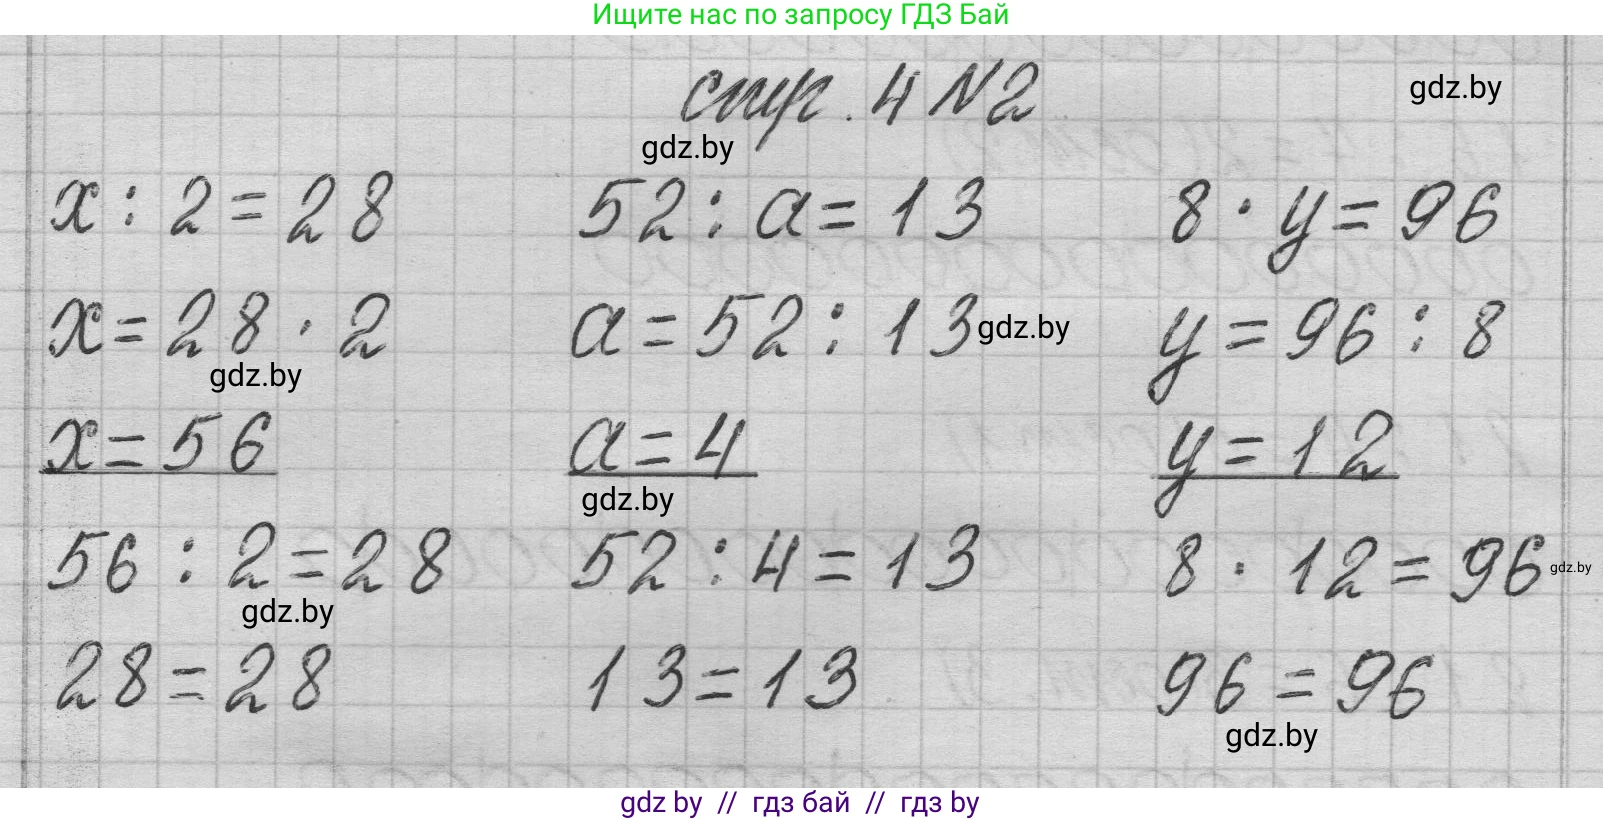 Ищите нас по запросу ГДЗ Бай
стр. 4 N2
gdz.by
gdz.by
x : 2 = 28 52 : a = 13 8 · y = 96
x = 28 · 2 a = 52 : 13 y = 96 : 8
gdz.by
gdz.by
x = 56 a = 4 y = 12
gdz.by
56 : 2 = 28 52 : 4 = 13 8 · 12 = 96
gdz.by
gdz.by
28 = 28 13 = 13 96 = 96
gdz.by
gdz by // гдз бай // гдз by